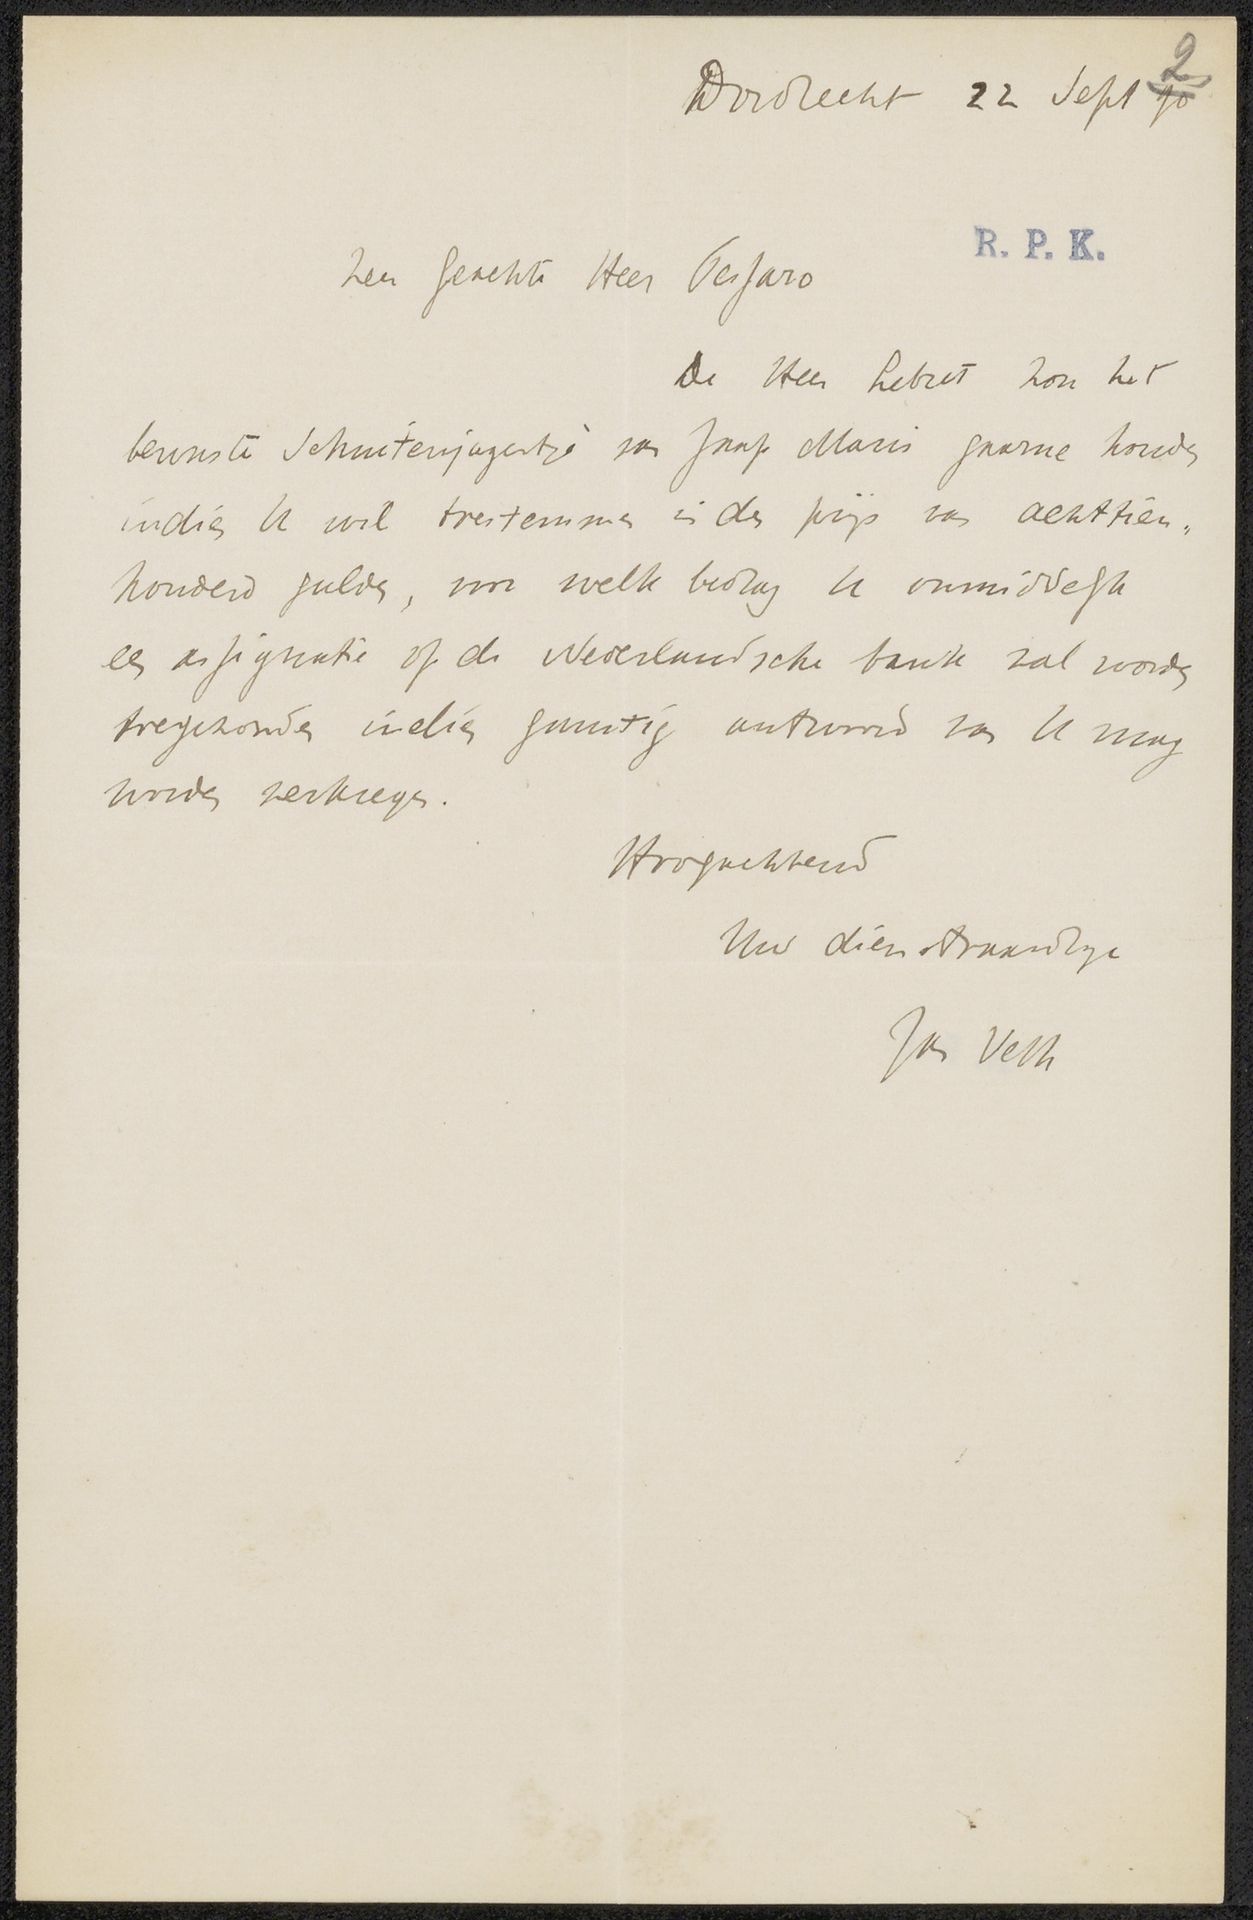 2
Dordrecht 22 Sept 90
R. P. K.
Zeer geachte Heer Pessaro
De Heer Lebret zou het
bewuste Schuitenjagertje van Jaap Maris gaarne houden
indien U wil toestemmen in den prijs van achttien„
honderd gulden, voor welk bedrag U onmiddellijk
een assignatie op de Nederlandsche bank zal worden
toegezonden indien gunstig antwoord van U mag
worden verkregen.
Hoogachtend
Uw dienstwaardige
Jan Veth